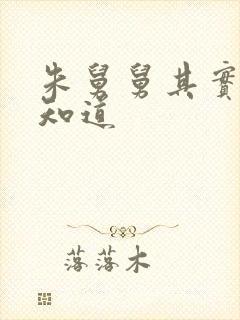 朱舅舅其實
知道
落落木